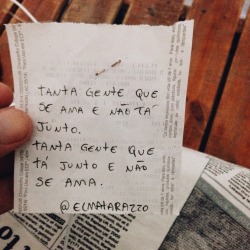 TANTA GENTE QUE
SE AMA E NÃO TÁ
JUNTO.
TANTA GENTE QUE
TÁ JUNTO E NÃO
SE AMA.
@ELMATARAZZO